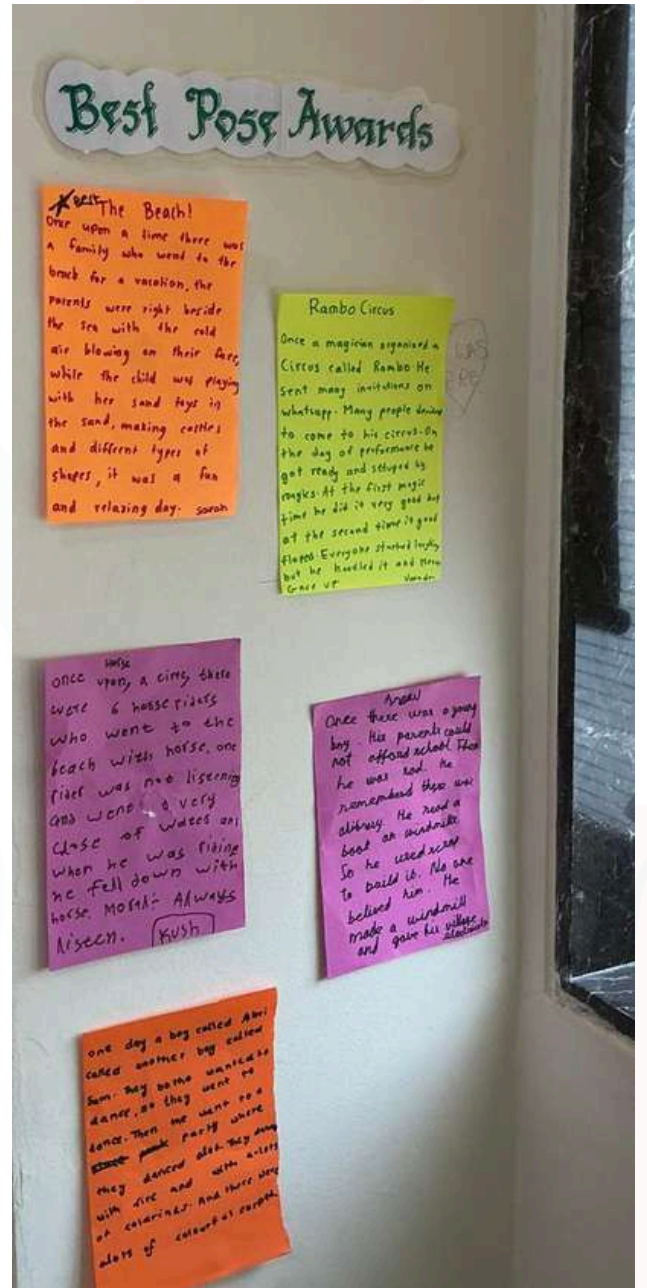 Best Pose Awards
Best The Beach!
Once upon a time there was
a family who went to the
beach for a vacation, the
parents were right beside
the sea with the cold
air blowing on their face,
while the child was playing
with her sand toys in
the sand, making castles
and different types of
shapes, it was a fun
and relaxing day. sarah
Rambo Circus
Once a magician organized a
Circus called Rambo He
sent many invitations on
whatsapp. Many people
to come to his circus. On
the day of performance he
got ready and setuped by
At the first magic
time he did it very good but
at the second time it good
floped. Everyone started
but he handled it and
Gave up
WAS
Horse
once upon, a there
were 6 horse riders
who went to the
beach with horse, one
rider was not listening
and went a very
close of water and
when he was riding
he fell down with
horse. Moral:- Always
listeen. Kush
Once there was a young
boy. His parents could
not afford school. Then
he was sad. he
remembered there was
alibrary. He read a
book on windmill.
So he used scrap
to build it. No one
belived him. He
made a windmill
and gave his village
one day a boy called
called another boy called
Sam. They botho wanted to
dance, so they went to
dance. Then the went to a
party where
they danced alot. They
with fire and with a-lots
of colorings. And there were
alots of colourful